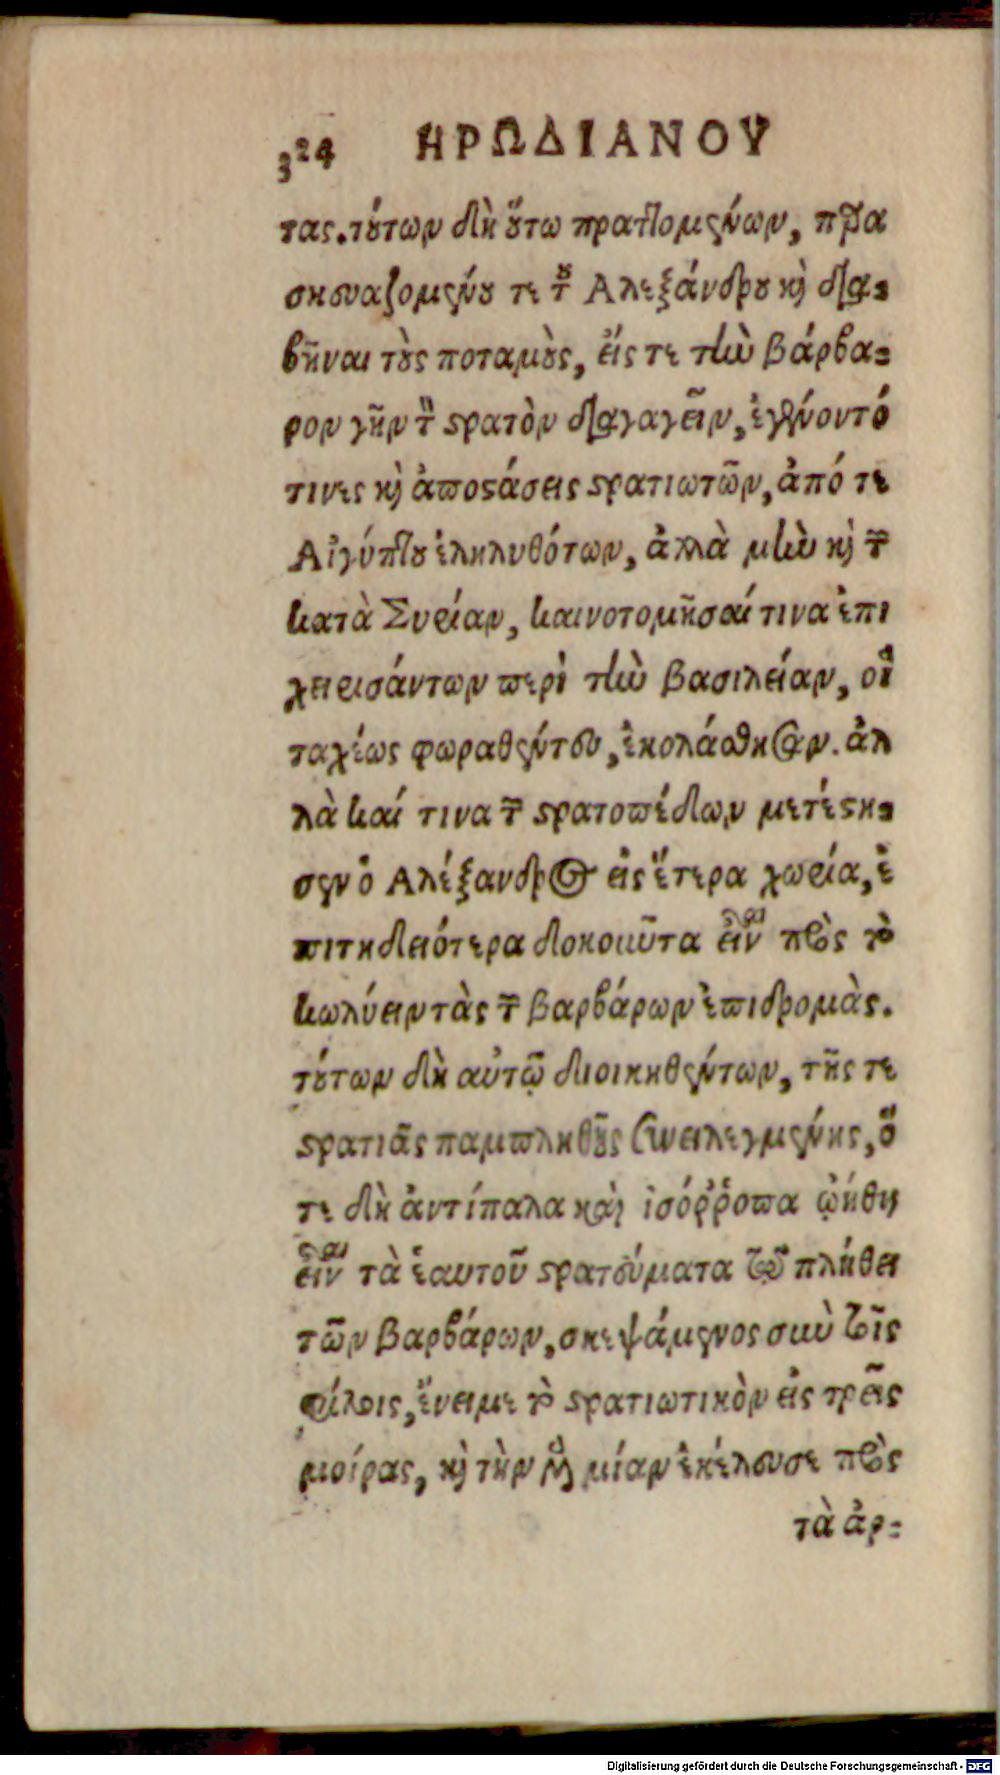 324 ΗΡΩΔΙΑΝΟΥ
τας. τούτων δὴ οὕτω πραττομένων, παρα
σκευαζομένου τε τοῦ Αλεξάνδρου καὶ δια-
βῆναι τοὺς ποταμοὺς, εἴς τε τὴν βάρβα-
ρον γῆν τὸν στρατὸν διαγαγεῖν, ἐγένοντό
τινες καὶ ἀποστάσεις στρατιωτῶν, ἀπό τε
Αἰγύπτου ἐληλυθότων, ἀλλὰ μὴν καὶ τῶν
κατὰ Συρίαν, καινοτομῆσαί τινα ἐπι
χειρισάντων περὶ τὴν βασιλείαν, οἳ
ταχέως φωραθέντες, ἐκολάσθησαν. ἀλ
λὰ καί τινα τῶν στρατοπέδων μετέστη-
σεν ὁ Αλέξανδρος εἰς ἕτερα χωρία, ἐ
πιτηδειότερα δοκοῦντα εἶναι πρὸς τὸ
κωλύειν τὰς τῶν βαρβάρων ἐπιδρομὰς.
τούτων δὴ αὐτῷ διοικηθέντων, τῆς τε
στρατιᾶς παμπληθοῦς συνειλεγμένης, ὅ
τε δὴ ἀντίπαλα καὶ ἰσόῤῥοπα ᾠήθη
εἶναι τὰ ἑαυτοῦ στρατεύματα τῷ πλήθει
τῶν βαρβάρων, σκεψάμενος σὺν τοῖς
φίλοις, ἔνειμε τὸ στρατιωτικὸν εἰς τρεῖς
μοίρας, καὶ τὴν μὲν μίαν ἐκέλευσε πρὸς
τὰ ἀρ-
Digitalisierung gefördert durch die Deutsche Forschungsgemeinschaft - DFG